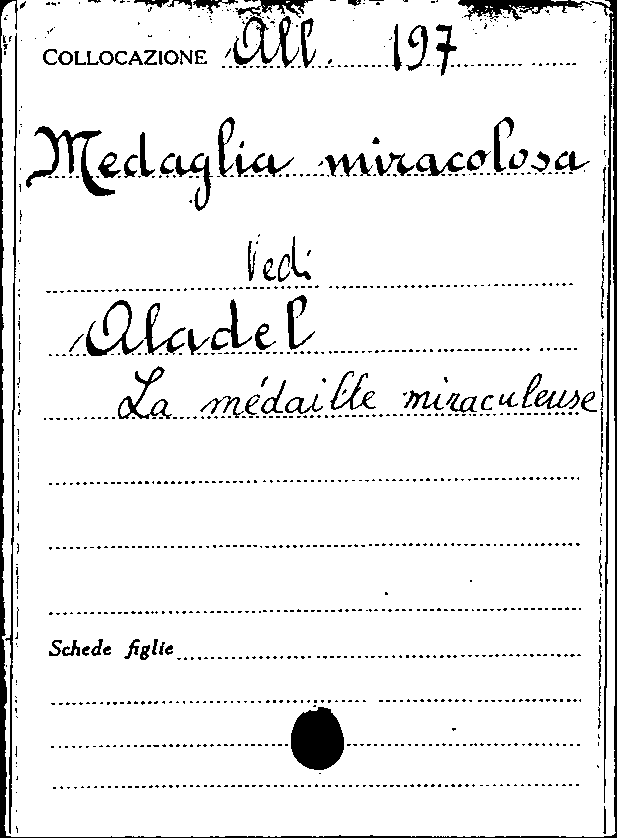 COLLOCAZIONE All. 197
Medaglia miracolosa
Vedi
Aladel
La médaille miraculeuse
Schede figlie